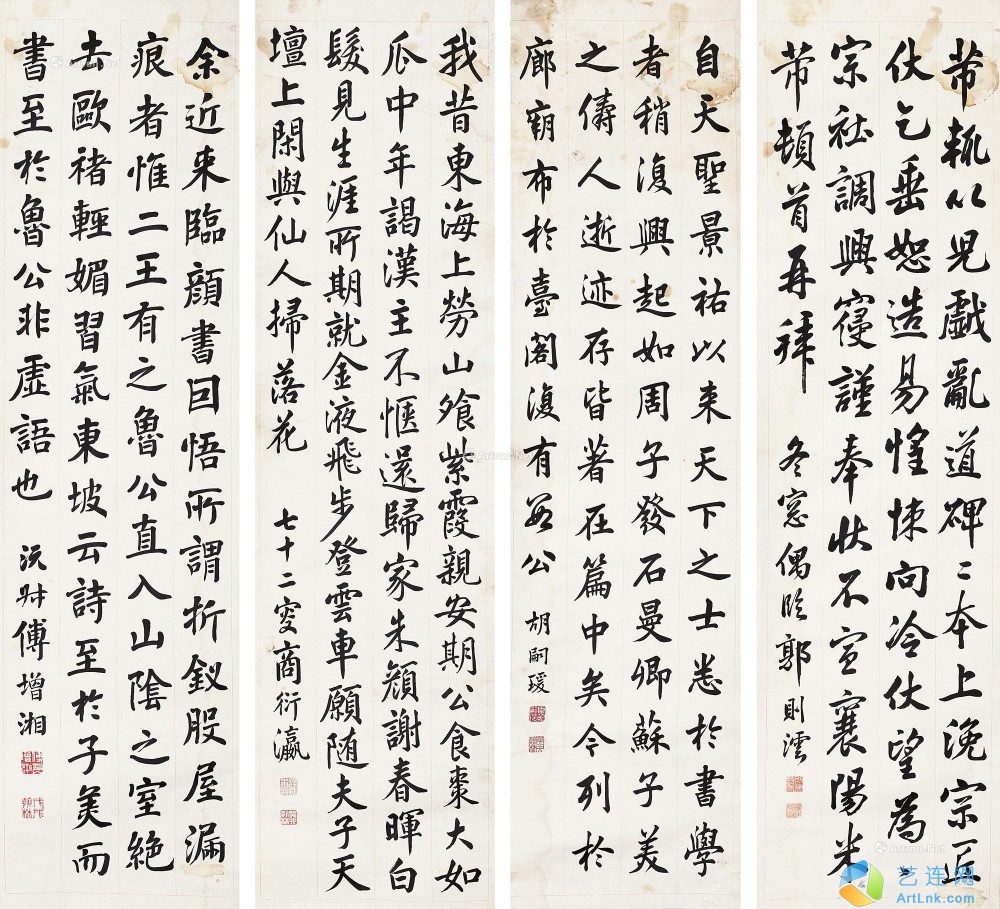 芾輒以兒戲亂道碑二本上浼宗匠
伏乞垂恕造易惶悚向冷伏望為
宗社調興寑謹奉狀不宣襄陽米
芾頓首再拜 冬窓偶臨郭則澐
自天聖景祐以来天下之士悉於書學
者稍復興起如周子發石曼卿蘇子美
之儔人逝迹存皆著在篇中矣今列於
廊廟布於臺閣復有數公 胡嗣瑗
我昔東海上勞山飡紫霞親安期公食棗大如
瓜中年謁漢主不愜還歸家朱顏謝春暉白
髮見生涯所期就金液飛步登雲車願随夫子天
壇上閑與仙人掃落花 七十二叟商衍瀛
余近来臨顏書回悟所謂折釵股屋漏
痕者惟二王有之魯公直入山陰之室絶
去歐褚輕媚習氣東坡云詩至於子美而
書至於魯公非虛語也 沅叔傅增湘
艺连网
ArtLnk.com